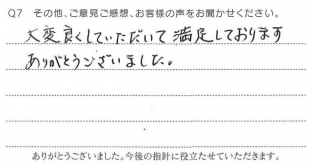 Q7 その他、ご意見ご感想、お客様の声をお聞かせください。
大変良くしていただいて満足しております
ありがとうございました。
ありがとうございました。今後の指針に役立たせていただきます。